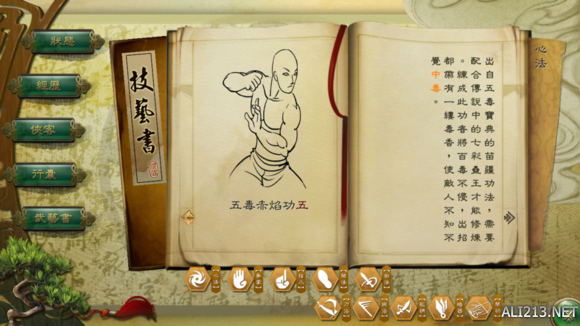 狀態
經歷
俠客
行囊
技藝書
技藝書
五毒赤焰功五
心法
出自五毒寶典的苗疆功法，需要
配合傳說中的七彩蠱王才能修煉
。練成此功者將百毒不侵，出招
都帶有一縷毒香，使敵人不知不
覺中毒。
ALI213.NET